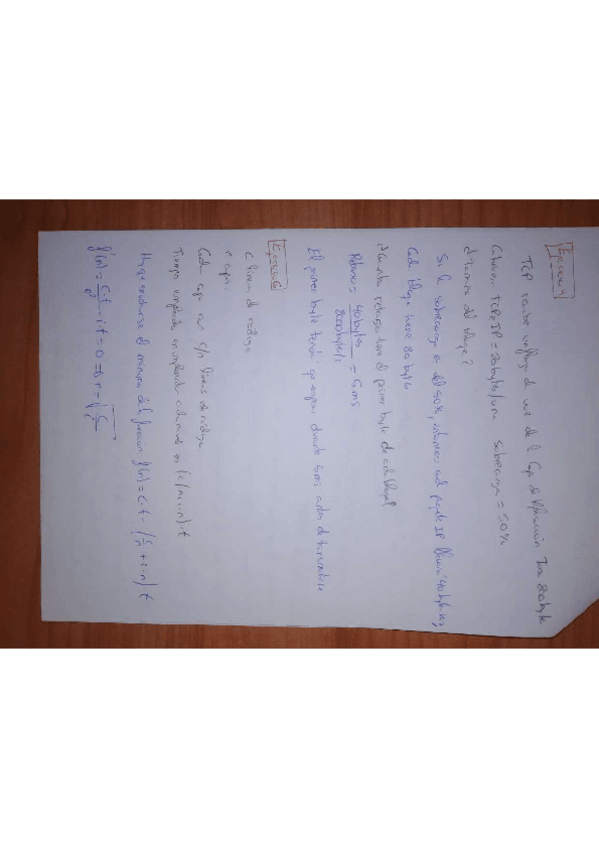 Ejercicio 4
TCP recibe un flujo de voz de la Capa de Aplicación Tasa 8000 byte
Cabecera TCP e IP = 20 bytes/una sobrecarga = 50%
d tamaño del bloque?
Si la sobrecarga es del 50%, entonces cada paquete IP lleva 40 bytes
Cada bloque tiene 80 bytes
d Cuanto retraso tiene el primer byte de cada bloque?
Retraso = 40 bytes / 8000 bytes/s = 5 ms
El primer byte tendrá que esperar durante 5 ms antes de transmitirse
Ejercicio 6
c líneas de código
n capas
Cada capa son c/n líneas de código
Tiempo empleado en implementar cada
Hay que encontrar el mínimo de la función f(n) = c·t - (c/n + i·n) t
f'(n) = c·t - i·t = 0 => n = √c/i